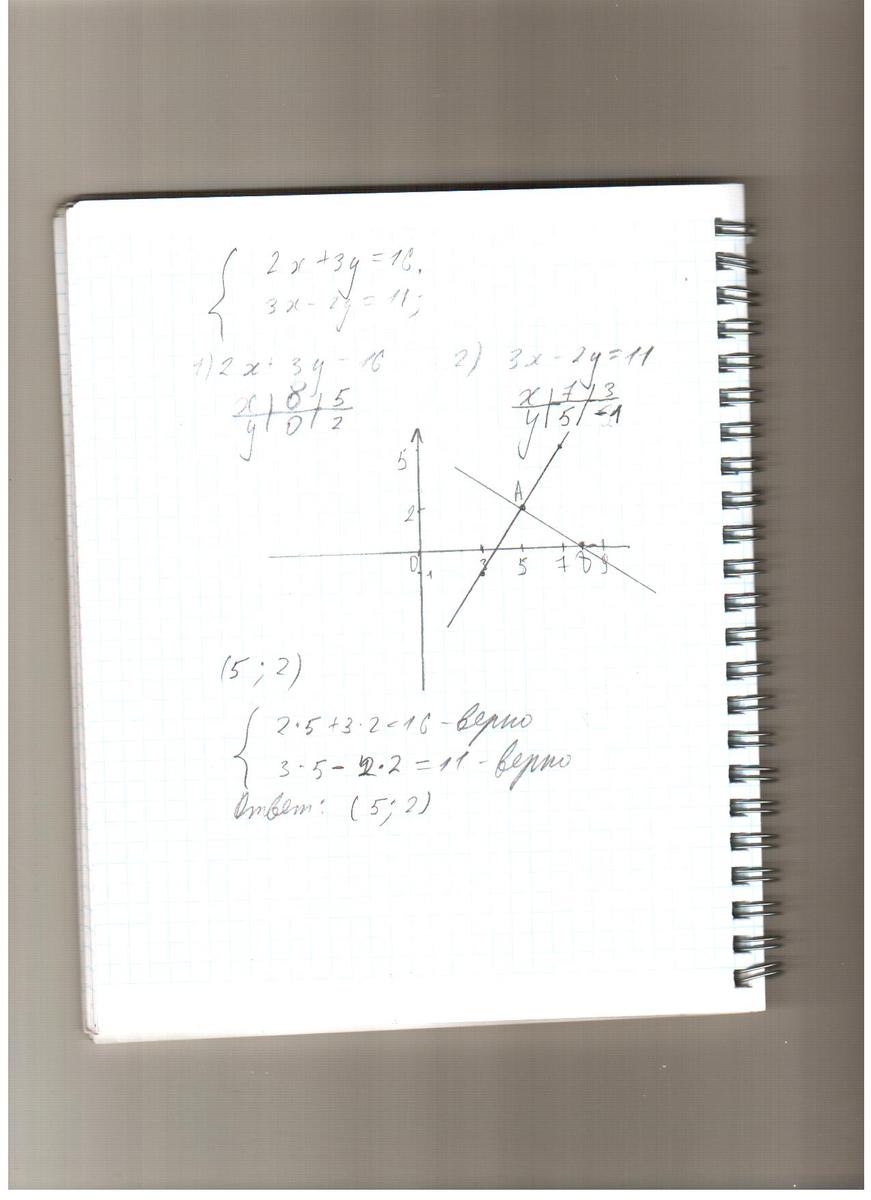 { 2x+3y=16,
3x-2y=11;
1) 2x+3y=16 2) 3x-2y=11
x | 8 | 5
y | 0 | 2
x | 7 | 3
y | 5 | -1
5
2
A
0
1
3 5 7 8 9
(5; 2)
{ 2·5+3·2=16 - верно
3·5-2·2=11 - верно
Ответ: (5; 2)